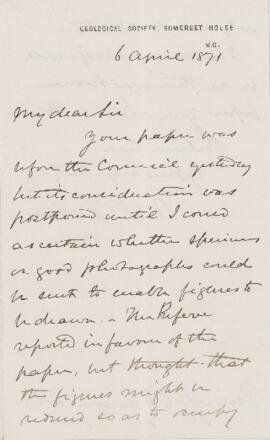 GEOLOGICAL SOCIETY, SOMERSET HOUSE
W.C.
6 April 1871
My dear Sir
Your paper was
upon the Council yesterday
but its consideration was
postponed until I could
ascertain whether specimens
or good photographs could
be sent to enable figures to
be drawn. – The Referee
reported in favour of the
paper, but thought that
the figures might be
reduced so as to occupy